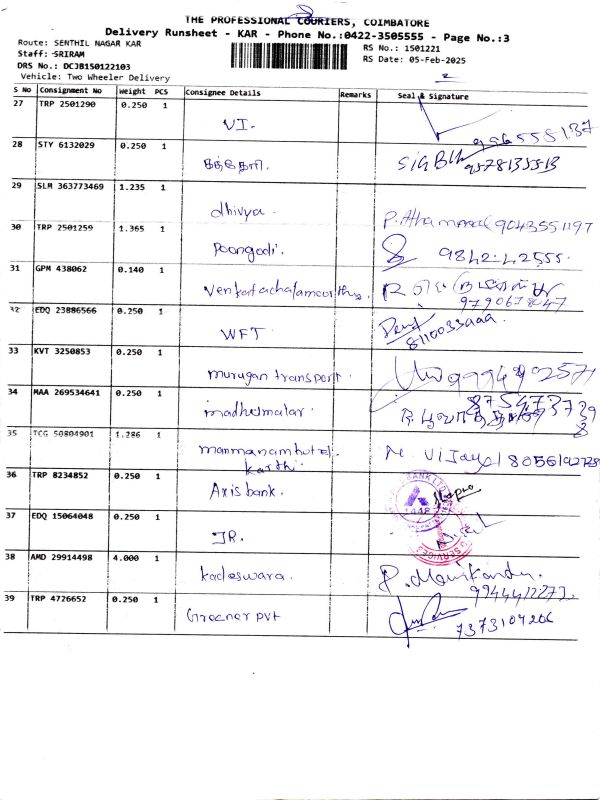 THE PROFESSIONAL COURIERS, COIMBATORE
Delivery Runsheet - KAR - Phone No.:0422-3505555 - Page No.:3
Route: SENTHIL NAGAR KAR
RS No.: 1501221
Staff: SRIRAM
RS Date: 05-Feb-2025
DRS No.: DCJB150122103
Vehicle: Two Wheeler Delivery
S No Consignment No Weight PCS Consignee Details Remarks Seal & Signature
27 TRP 2501290 0.250 1
VI.
28 STY 6132029 0.250 1
9578135513
29 SLM 363773469 1.235 1
dhivya.
P. Athammal 9043551197
30 TRP 2501259 1.365 1
Poongodi. 9842-42555.
31 GPM 438062 0.140 1
9790678047
32 EDQ 23886566 0.250 1
WFT
33 KVT 3250853 0.250 1
murugan transport
34 MAA 269534641 0.250 1
madhumalar.
35 TCG 50804901 1.286 1
karthi M. Vijay
36 TRP 8234852 0.250 1
Axis bank.
37 EDQ 15064048 0.250 1
JR.
38 AMD 29914498 4.000 1
kadeswara. P. Manikandan.
39 TRP 4726652 0.250 1
Greener pvt
7373104206